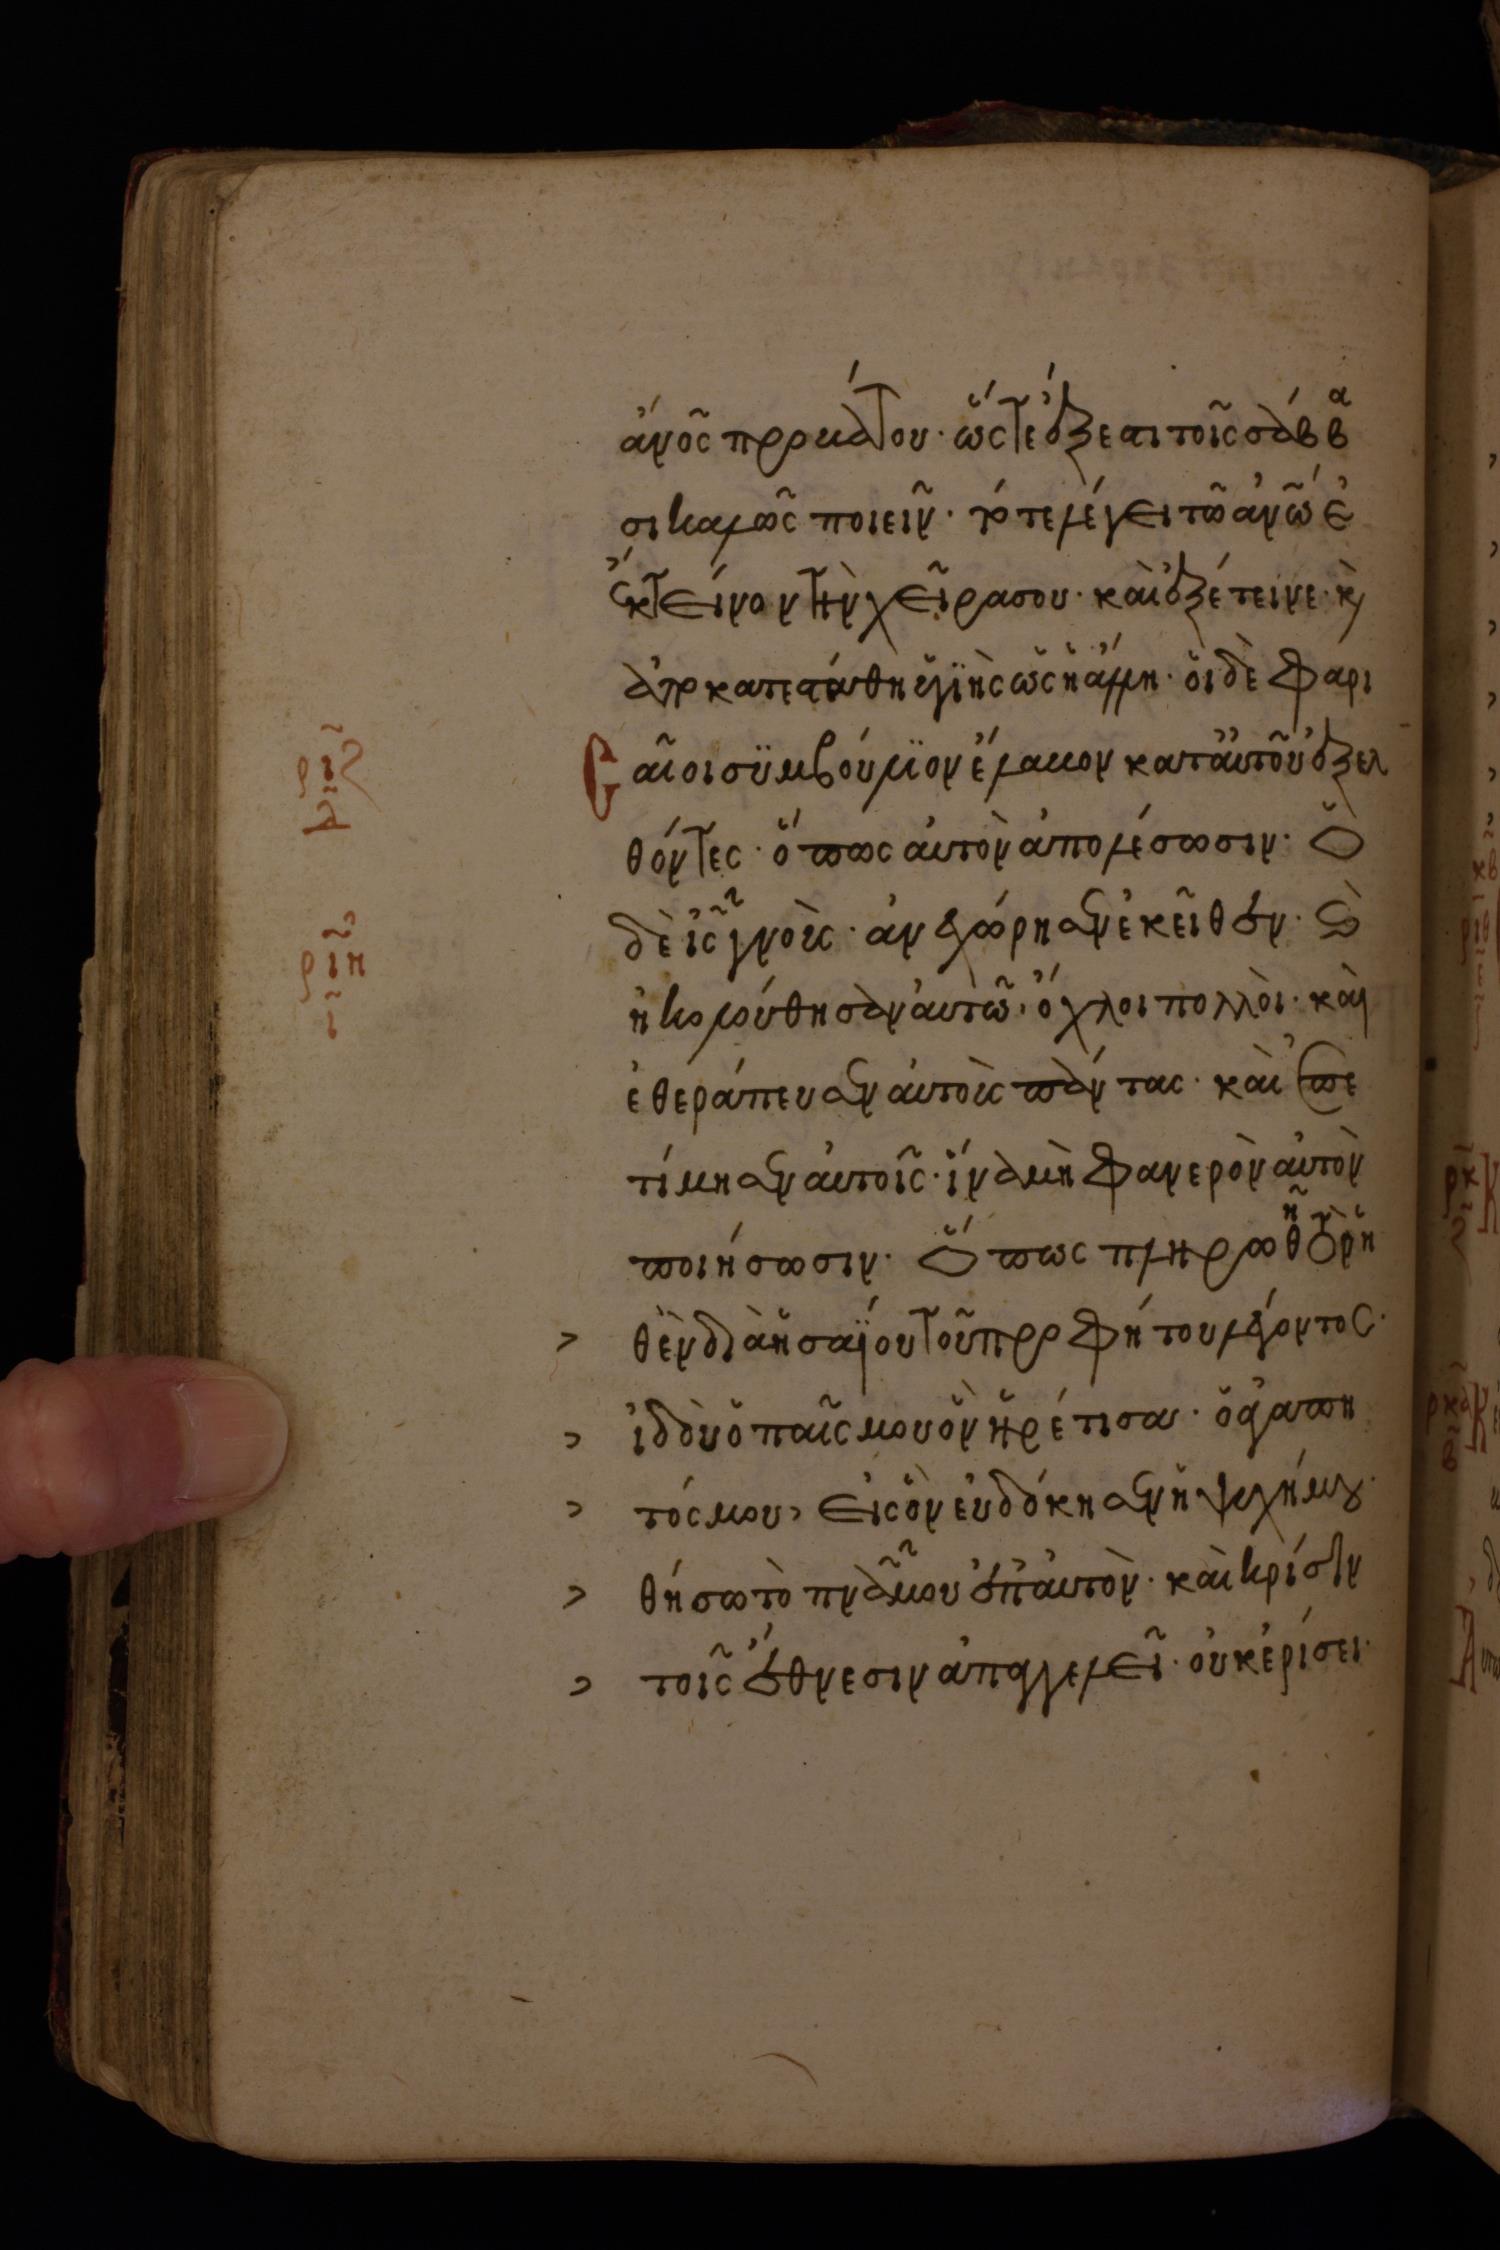 ἀνος προβάτου· ὥστε ἔξεστι τοῖς σάββα
σι καλῶς ποιεῖν· τότε λέγει τῶ ἀνω ἐ
ἔκτεινον τὴν χεῖρα σου· καὶ ἐξέτεινε· κ
ἀποκατεστάθη ὑγιὴς ὡς ἡ ἄλλη· ὁι δὲ φαρι
σαῖοι συμβούλϊον ἔλαβον κατ αὐτοῦ ἐξελ
θόντες· ὅπως αὐτὸν ἀπολέσωσιν· Ὁ
δὲ ις γνοὺς· ἀνεχώρησεν ἐκεῖθεν· κ
ἠκολούθησαν αὐτῶ· ὄχλοι πολλοὶ· καὶ
ἐθεράπευσεν αὐτοὺς πάντας· καὶ ἐπε
τίμησεν αὐτοῖς· ἵνα μὴ φανερὸν αὐτὸν
ποιήσωσιν· Ὅπως πληρωθῆ τὸ ῥη
θὲν διὰ ἡσαϊου τοῦ προφήτου λέγοντος·
ἰδοὺ ὁ παῖς μου ὃν ἡρέτισα· ὁ ἀγαπη
τός μου, εἰς ὃν εὐδόκησεν ἡ ψυχή μου·
θήσω τὸ πνα μου ἐπ αὐτὸν· καὶ κρίσιν
τοῖς ἔθνεσιν ἀπαγγελεῖ· οὐκ ἐρίσει·
ριζ
δ
ριη
ι